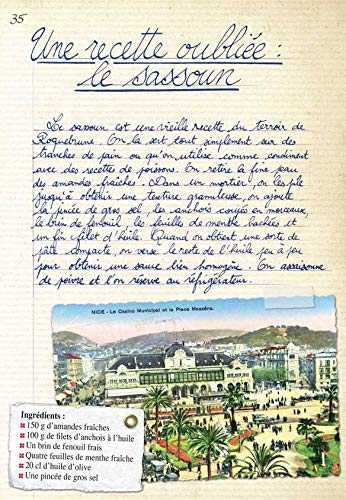 35
Une recette oubliée :
le sassoun
Le sassoun est une vieille recette du terroir de
Roquebrune. On la sert tout simplement sur des
tranches de pain ou qu'on utilise comme condiment
avec des recettes de poissons. On retire la fine peau
des amandes fraîches. Dans un mortier, on les pile
jusqu'à obtenir une texture granuleuse, on ajoute
la pincée de gros sel, les anchois coupés en morceaux,
le brin de fenouil, les feuilles de menthe hachées et
un fin filet d'huile. Quand on obtient une sorte de
pâte compacte, on verse le reste de l'huile peu à peu
pour obtenir une sauce bien homogène. On assaisonne
de poivre et l'on réserve au réfrigérateur.
NICE - Le Casino Municipal et la Place Masséna.
Ingrédients :
150 g d'amandes fraîches
100 g de filets d'anchois à l'huile
Un brin de fenouil frais
Quatre feuilles de menthe fraîche
20 cl d'huile d'olive
Une pincée de gros sel